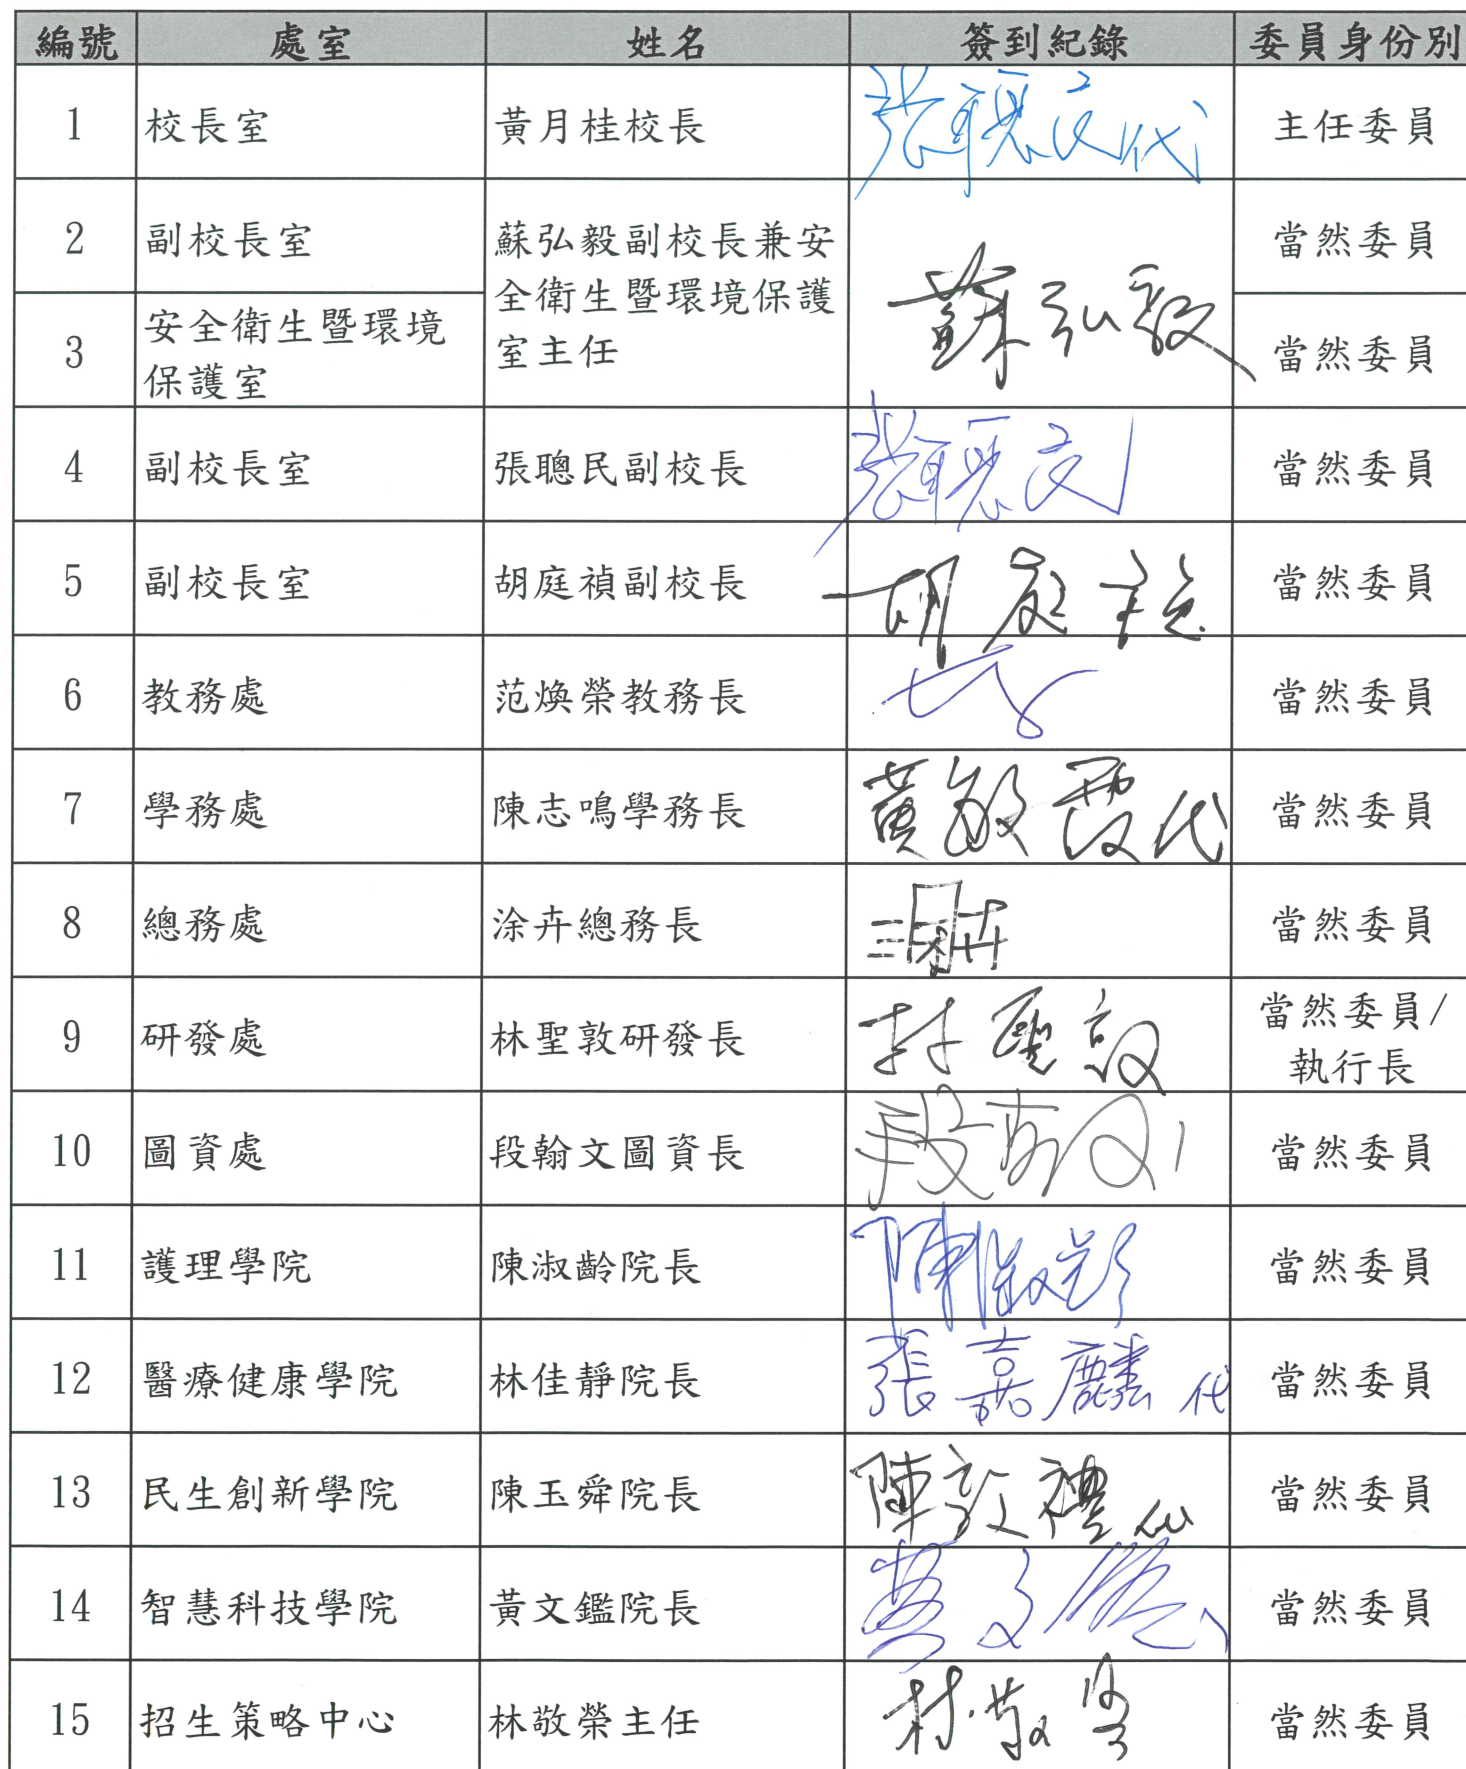 編號 處室 姓名 簽到紀錄 委員身份別
1 校長室 黃月桂校長 張聰民代 主任委員
2 副校長室 蘇弘毅副校長兼安 當然委員
全衛生暨環境保護
室主任
蘇弘毅
3 安全衛生暨環境 當然委員
保護室
4 副校長室 張聰民副校長 張聰民 當然委員
5 副校長室 胡庭禎副校長 胡庭禎 當然委員
6 教務處 范煥榮教務長 當然委員
7 學務處 陳志鳴學務長 黃敏霞代 當然委員
8 總務處 涂卉總務長 當然委員
9 研發處 林聖敦研發長 林聖敦 當然委員/
執行長
10 圖資處 段翰文圖資長 當然委員
11 護理學院 陳淑齡院長 陳淑齡 當然委員
12 醫療健康學院 林佳靜院長 張嘉麟代 當然委員
13 民生創新學院 陳玉舜院長 陳敦禮代 當然委員
14 智慧科技學院 黃文鑑院長 黃文鑑 當然委員
15 招生策略中心 林敬榮主任 林敬榮 當然委員